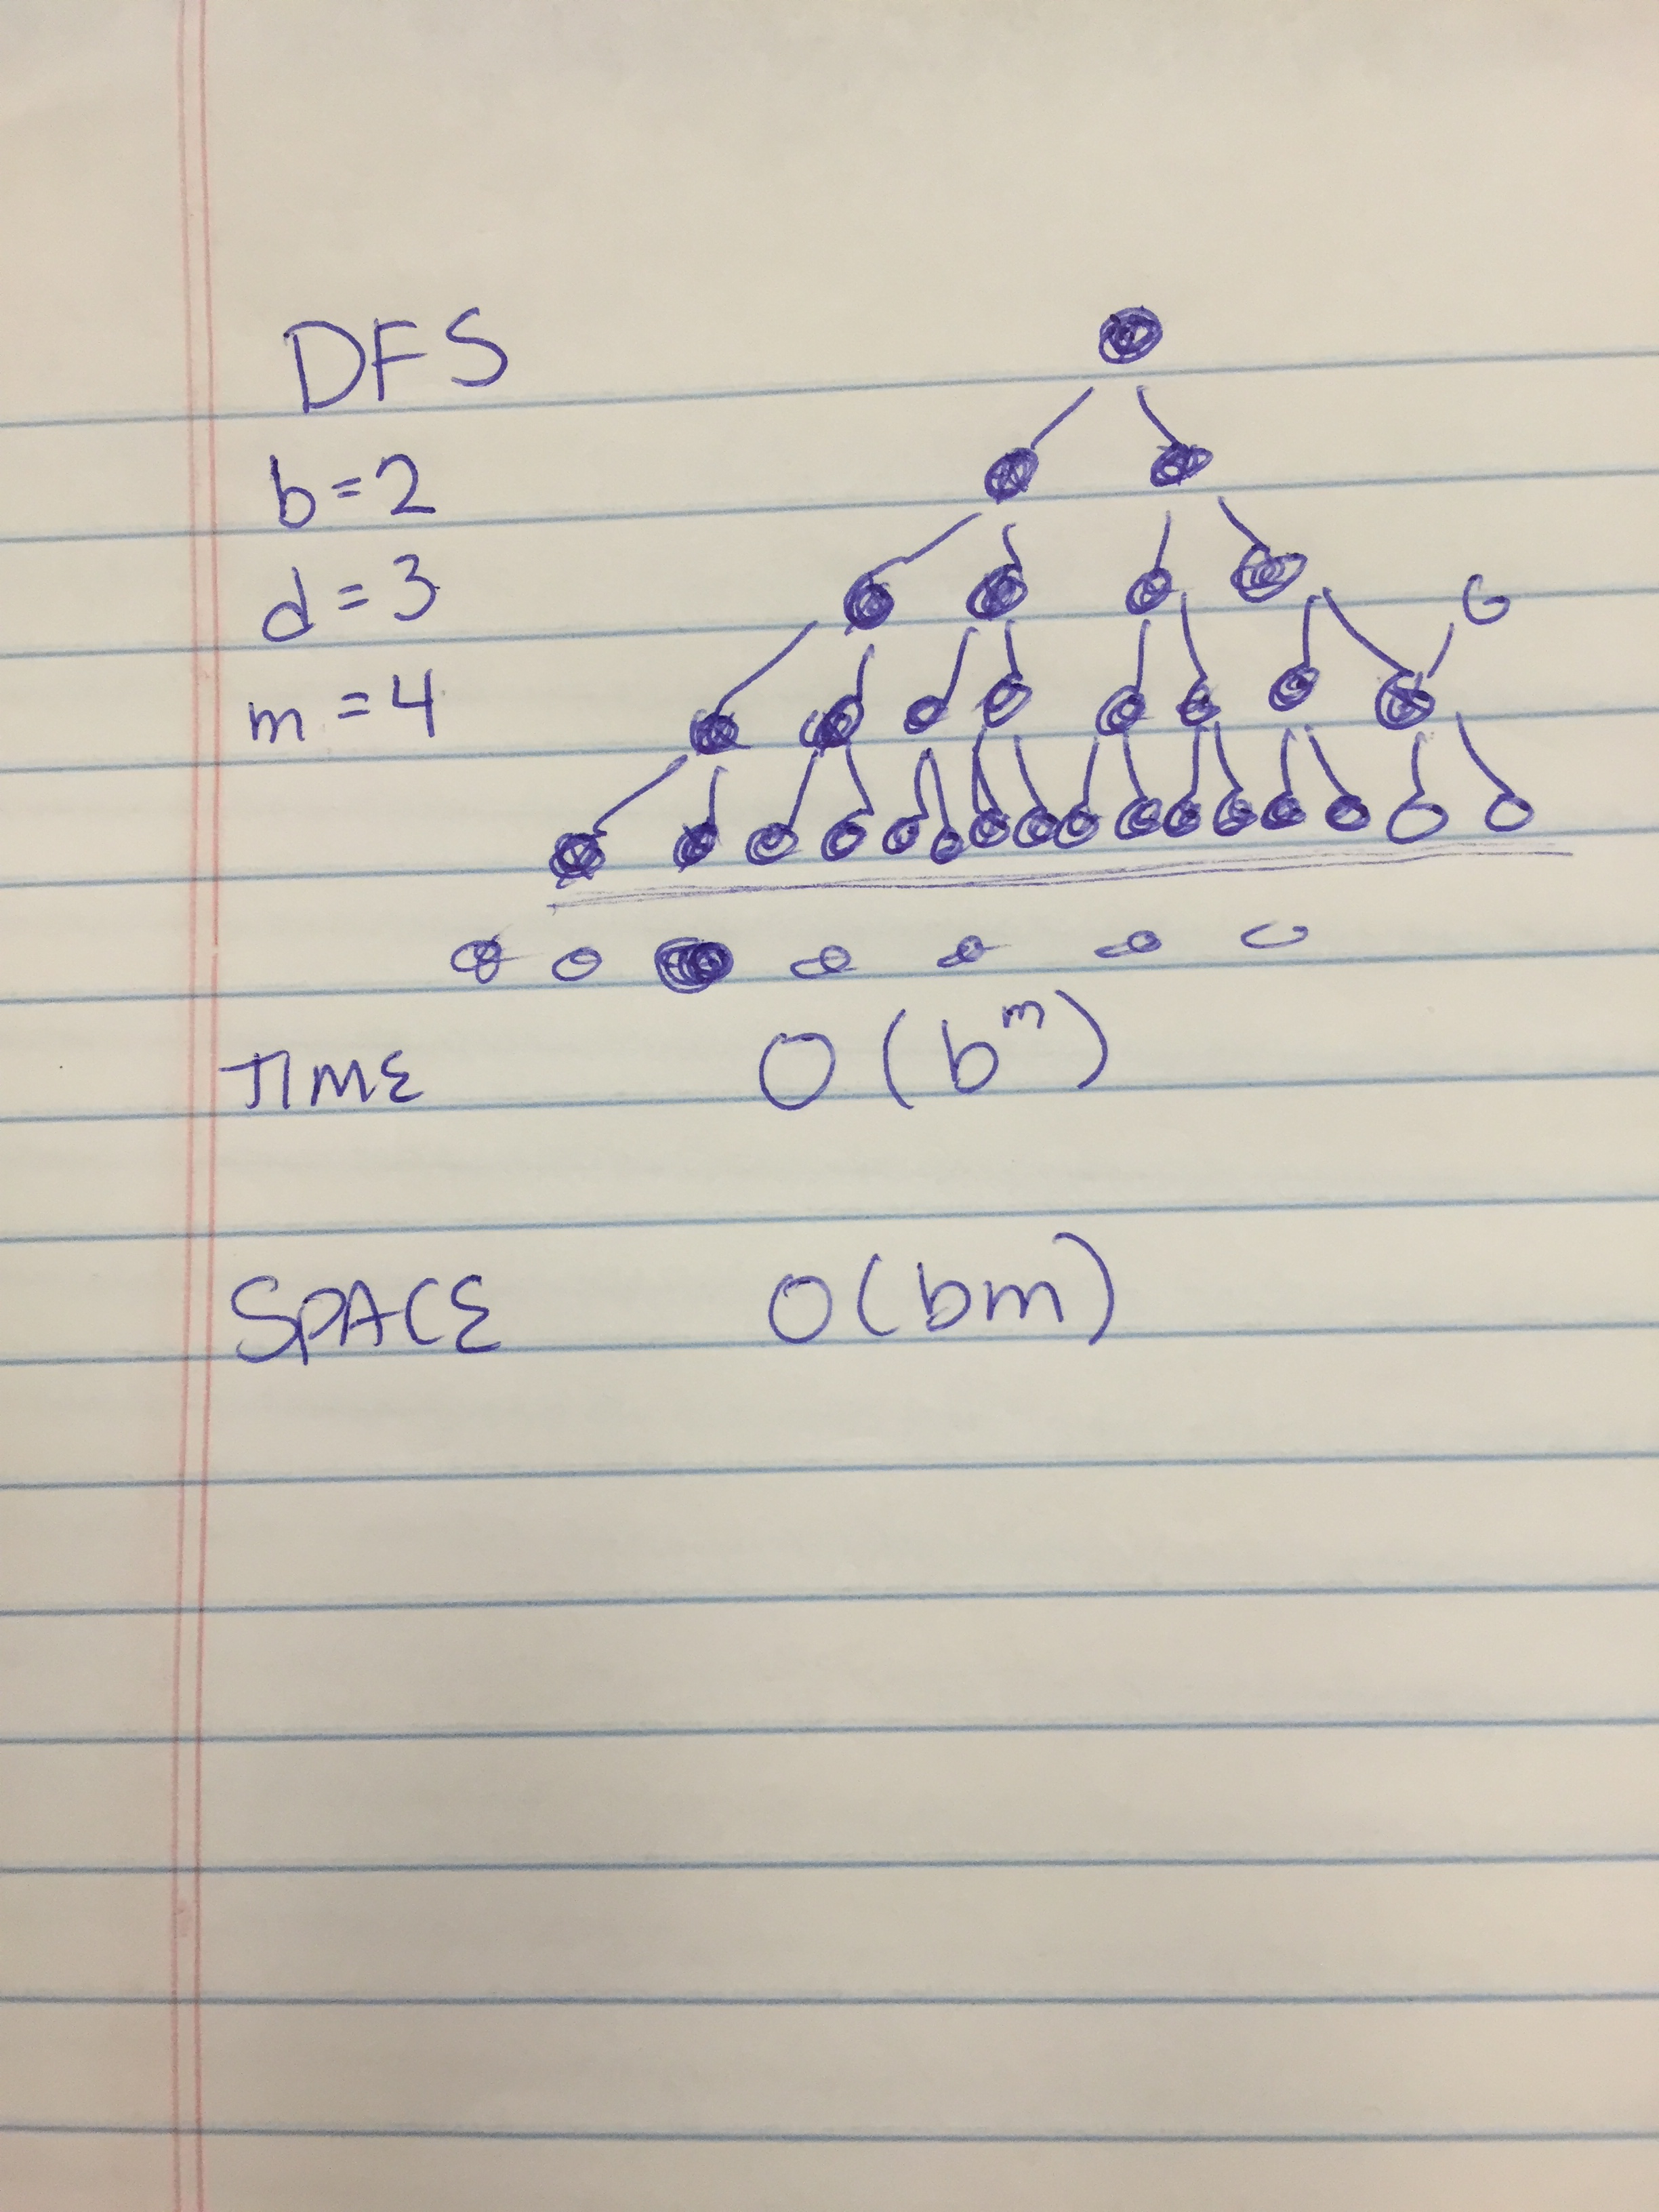 DFS
b=2
d=3
G
m=4
TIME O(b^m)
SPACE O(bm)